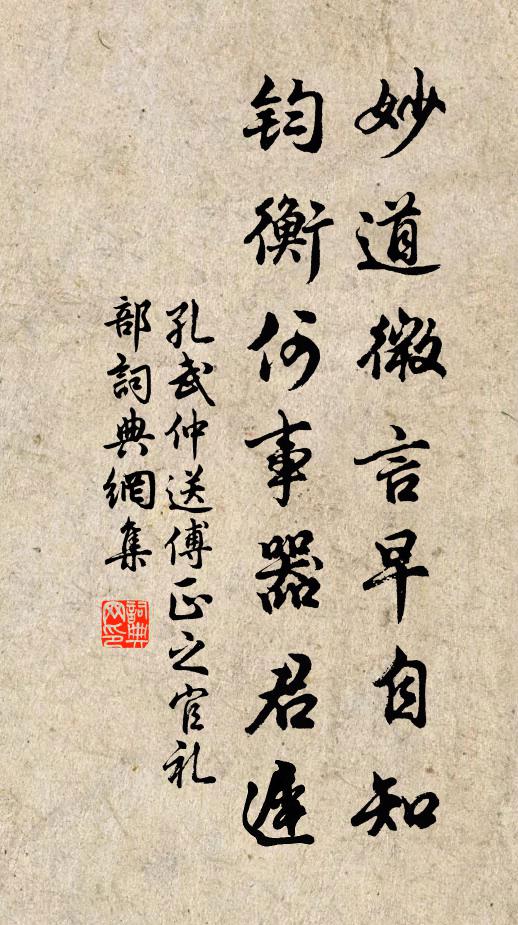 妙道微言早自知
钧衡何事器君遲
孔武仲送傅正之官礼
部詞典網集
詞典网印